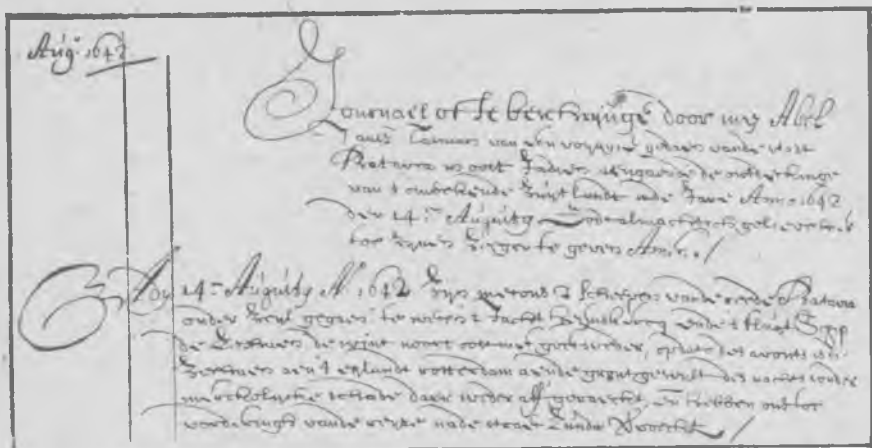 Aug.º 1642
Journael ofte beschrijvinge door mij Abel
Jansz Tasman van een voyagie gedaen vande stadt
Batavia in oost Indien aengaende de ontdeckinge
van 't onbekende Zuijt landt inde Jare Anno 1642
den 14.en Augustij Godt almachtich gelieve hier
toe zijnen zeegen te geven Amen /
Ady 14.en Augustij Aº. 1642 Zijn met ons 2 scheepen vande reede Batavia
onder Zeijl gegaen te weten t' Jacht Heemskercq ende 't fluijt Schip
de Zeehaen de wint noort oost met goet weder, op dato des avonts is
Zeehaen aen't eijlandt rotterdam aende gront geweest des nachts sonder
merckelijcke schade daer weder aff geraeckt, en hebben ons tot
vorderingh vande reijse nade straet Sunda